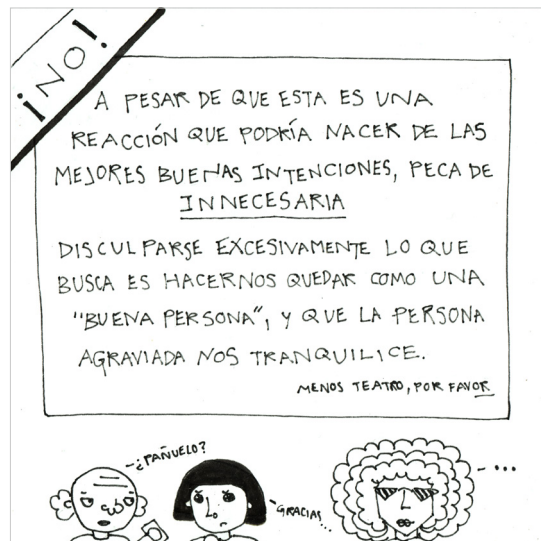 ¡NO!
A PESAR DE QUE ESTA ES UNA
REACCIÓN QUE PODRÍA NACER DE LAS
MEJORES BUENAS INTENCIONES, PECA DE
INNECESARIA
DISCULPARSE EXCESIVAMENTE LO QUE
BUSCA ES HACERNOS QUEDAR COMO UNA
"BUENA PERSONA", Y QUE LA PERSONA
AGRAVIADA NOS TRANQUILICE.
MENOS TEATRO, POR FAVOR
-¿PAÑUELO?
-GRACIAS...
-...